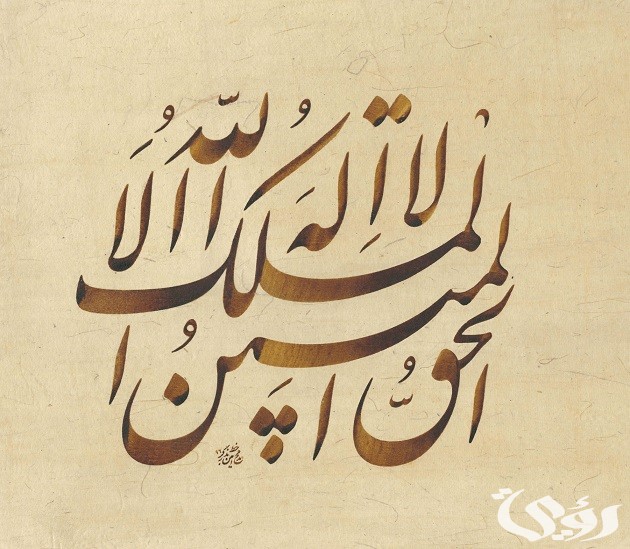 لا اِلهَ اِلَّا اللّٰهُ
الملکُ الحقُّ المبینُ